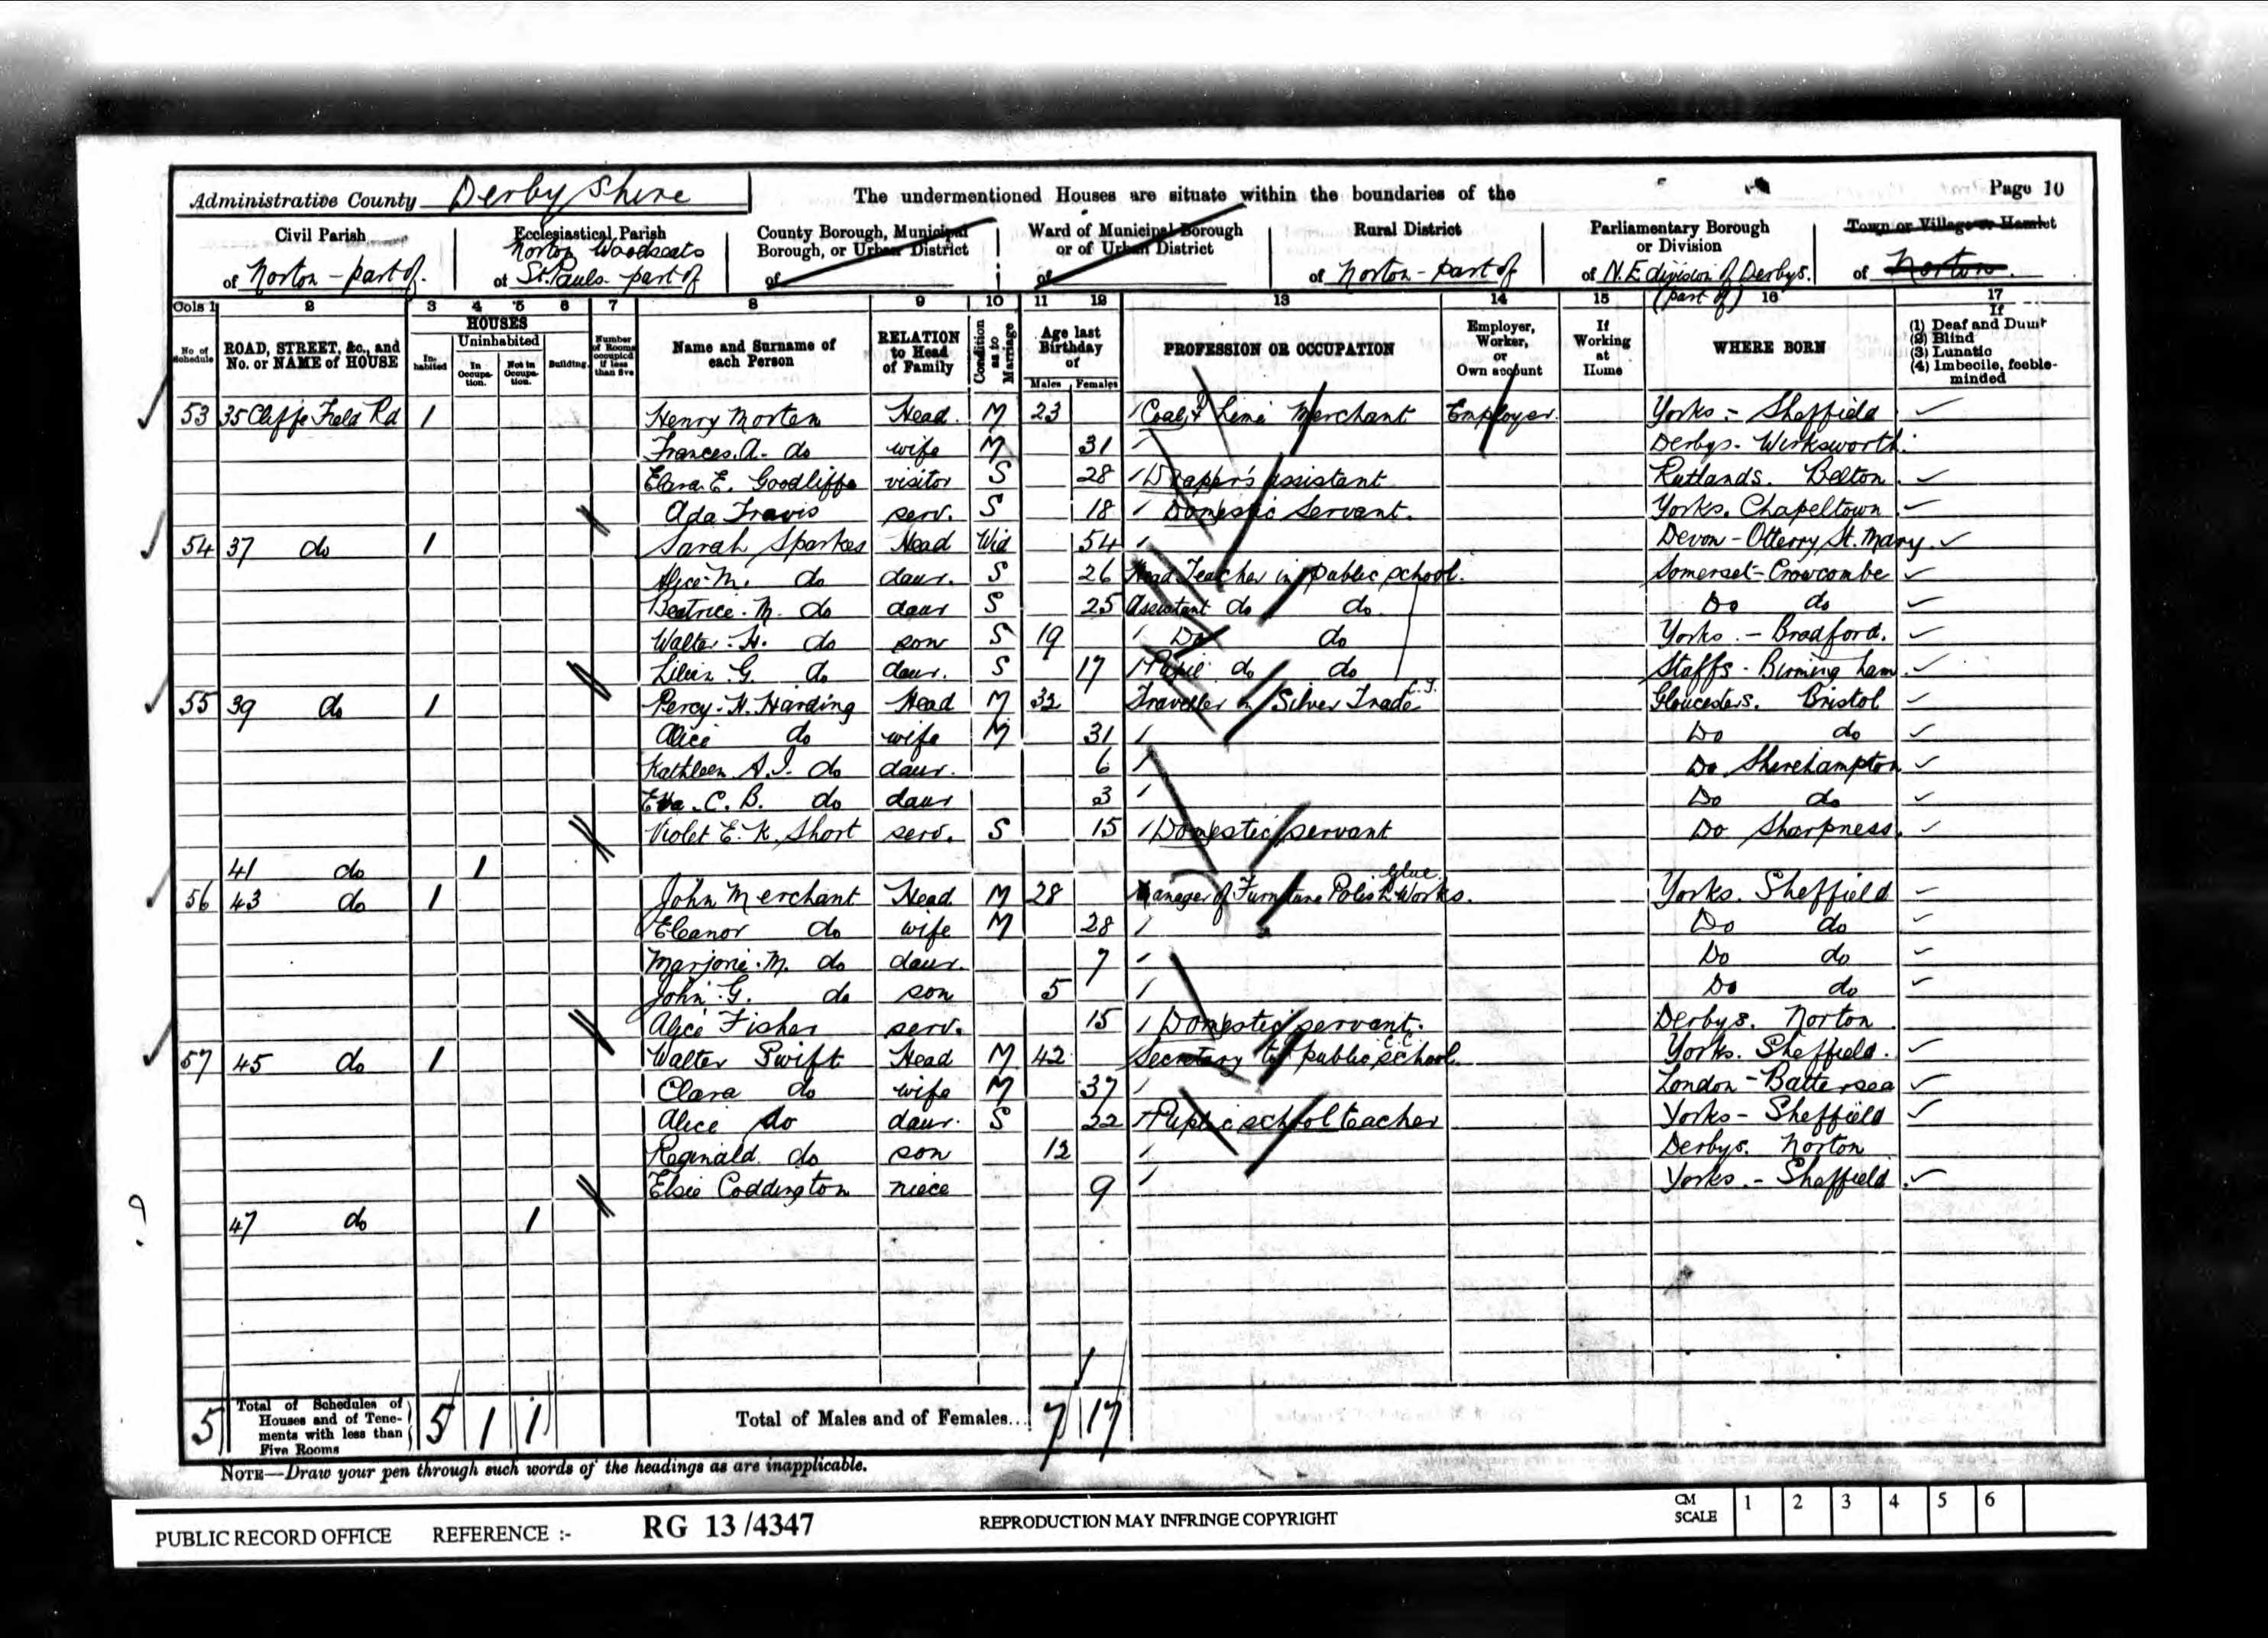 Administrative County Derbyshire The undermentioned Houses are situate within the boundaries of the Page 10
Civil Parish of Norton - part of.
Ecclesiastical Parish of Norton Woodseats St. Pauls - part of
County Borough, Municipal Borough, or Urban District of
Ward of Municipal Borough or of Urban District of
Rural District of Norton - part of
Parliamentary Borough or Division of N.E division of Derbys. (part of)
Town or Village or Hamlet of Norton.
Cols 1 2 3 4 5 6 7 8 9 10 11 12 13 14 15 16 17
No of Schedule
ROAD, STREET, &c., and No. or NAME of HOUSE
HOUSES
Inhabited
Uninhabited
In Occupation.
Not in Occupation.
Building.
Number of Rooms occupied if less than five
Name and Surname of each Person
RELATION to Head of Family
Condition as to Marriage
Age last Birthday of
Males Females
PROFESSION OR OCCUPATION
Employer, Worker, or Own account
If Working at Home
WHERE BORN
If
(1) Deaf and Dumb
(2) Blind
(3) Lunatic
(4) Imbecile, feeble-minded
53 35 Cliffe Field Rd 1 Henry Morten Head M 23 Coal & Lime Merchant Employer. Yorks - Sheffield
Frances. A. do wife M 31 Derbys - Wirksworth.
Clara E. Goodliffe visitor S 28 Draper's assistant Rutlands. Belton
Ada Travis serv. S 18 Domestic Servant. Yorks. Chapeltown
54 37 do 1 Sarah Sparkes Head Wid 54 Devon - Otterry St. Mary.
Alice. M. do daur. S 26 Head Teacher in public school. Somerset - Crowcombe
Beatrice. M. do daur S 25 Assistant do do Do do
Walter. H. do son S 19 Do do Yorks. - Bradford.
Lilian G. do daur. S 17 Pupil do do Staffs - Birmingham.
55 39 do 1 Percy. H. Harding Head M 33 Traveller in Silver Trade C.T. Gloucesters. Bristol
Alice do wife M 31 Do do
Kathleen A. I. do daur. 6 Do Sherehampton
Eva. C. B. do daur 3 Do do
Violet E. K. Short serv. S 15 Domestic servant Do Sharpness.
41 do 1
56 43 do 1 John Merchant Head M 28 Manager of Furniture Polish Glue Works. Yorks. Sheffield
Eleanor do wife M 28 Do do
Marjorie. M. do daur. 7 Do do
John. G. do son 5 Do do
Alice Fisher serv. 15 Domestic servant. Derbys. Norton
57 45 do 1 Walter Swift Head M 42 Secretary to public school C.C. Yorks. Sheffield.
Clara do wife M 37 London - Battersea
Alice do daur. S 22 Public school teacher Yorks - Sheffield
Reginald do son 12 Derbys. Norton
Elsie Coddington niece 9 Yorks. - Sheffield
47 do 1
5 Total of Schedules of Houses and of Tenements with less than Five Rooms 5 1 1 Total of Males and of Females... 7 17
NOTE—Draw your pen through such words of the headings as are inapplicable.
PUBLIC RECORD OFFICE REFERENCE :- RG 13/4347 REPRODUCTION MAY INFRINGE COPYRIGHT CM SCALE 1 2 3 4 5 6